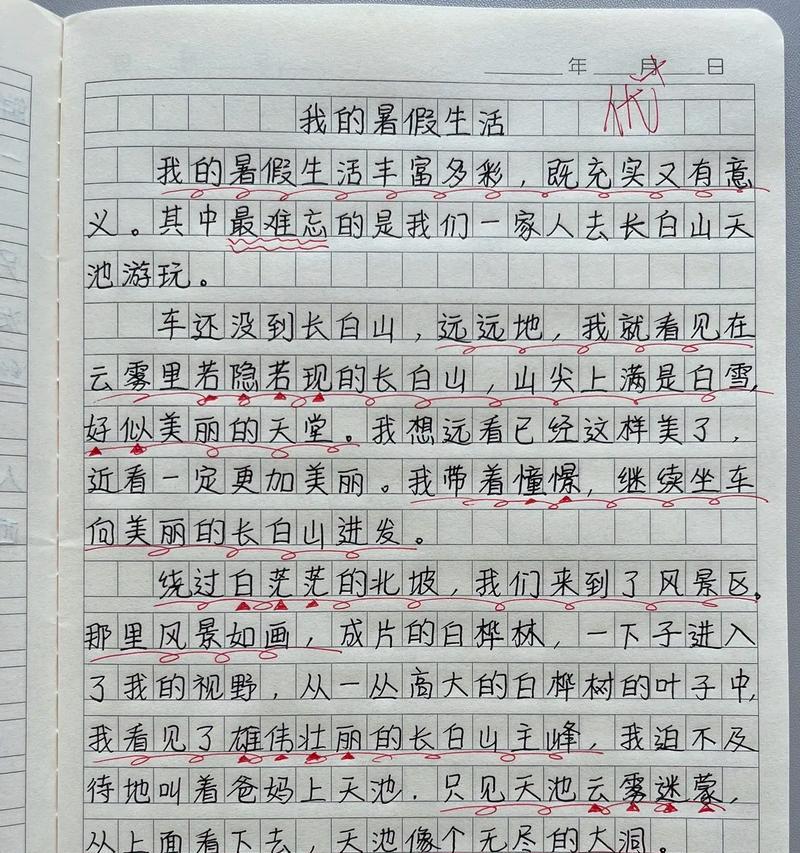 年 月 日
优
我的暑假生活
我的暑假生活丰富多彩，既充实又有意
义。其中最难忘的是我们一家人去长白山天
池游玩。
车还没到长白山，远远地，我就看见在
云雾里若隐若现的长白山，山尖上满是白雪，
好似美丽的天堂。我想远看已经这样美了，
近看一定更加美丽。我带着憧憬，继续坐车
向美丽的长白山进发。
绕过白茫茫的北坡，我们来到了风景区。
那里风景如画，成片的白桦林，一下子进入
了我的视野，从一丛高大的白桦树的叶子中，
我看见了雄伟壮丽的长白山主峰，我迫不及
待地叫着爸妈上天池．只见天池云雾迷蒙，
从上面看下去，天池像个无尽的大洞。